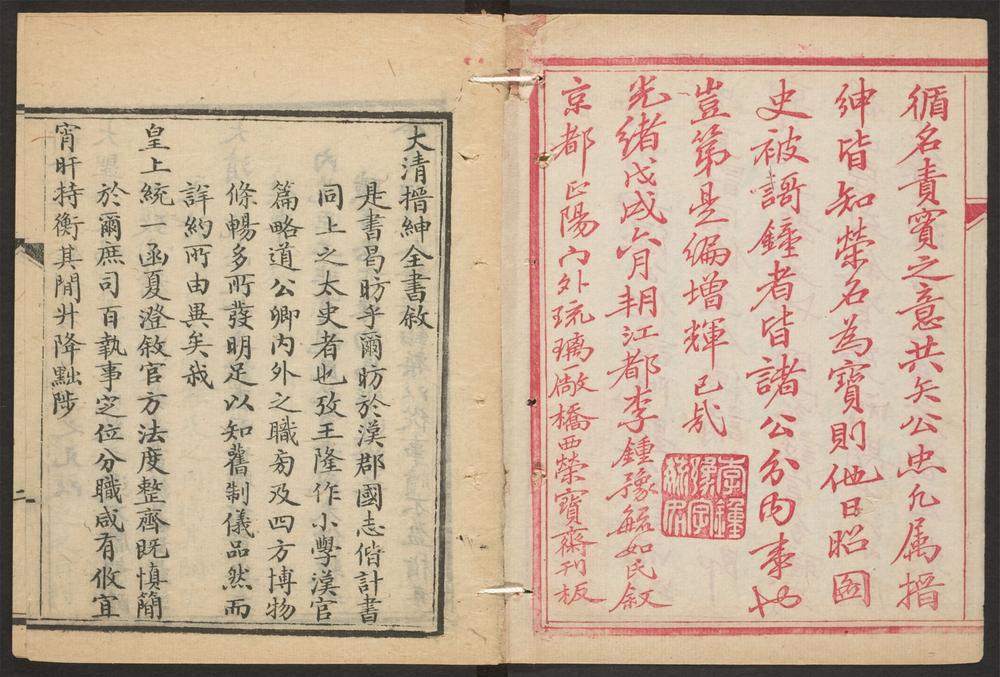 循名責實之意共矢公忠凡属搢
紳皆知榮名為寶則他日昭國
史被謌鐘者皆諸公分內事也
豈第是編增輝已哉
光緒戊戌六月朔江都李鍾豫毓如氏敘
京都正陽門外琉璃廠橋西榮寶齋刊板
李鍾豫字毓如
大清搢紳全書敘
是書曷昉乎爾昉於漢郡國志偕計書
同上之太史者也攷王隆作小學漢官
篇略道公卿內外之職旁及四方博物
條暢多所發明足以知舊制儀品然而
詳約所由異矣我
皇上統一函夏澄敘官方法度整齊既慎簡
於爾庶司百執事定位分職咸有攸宜
宵旰持衡其閒升降黜陟
二